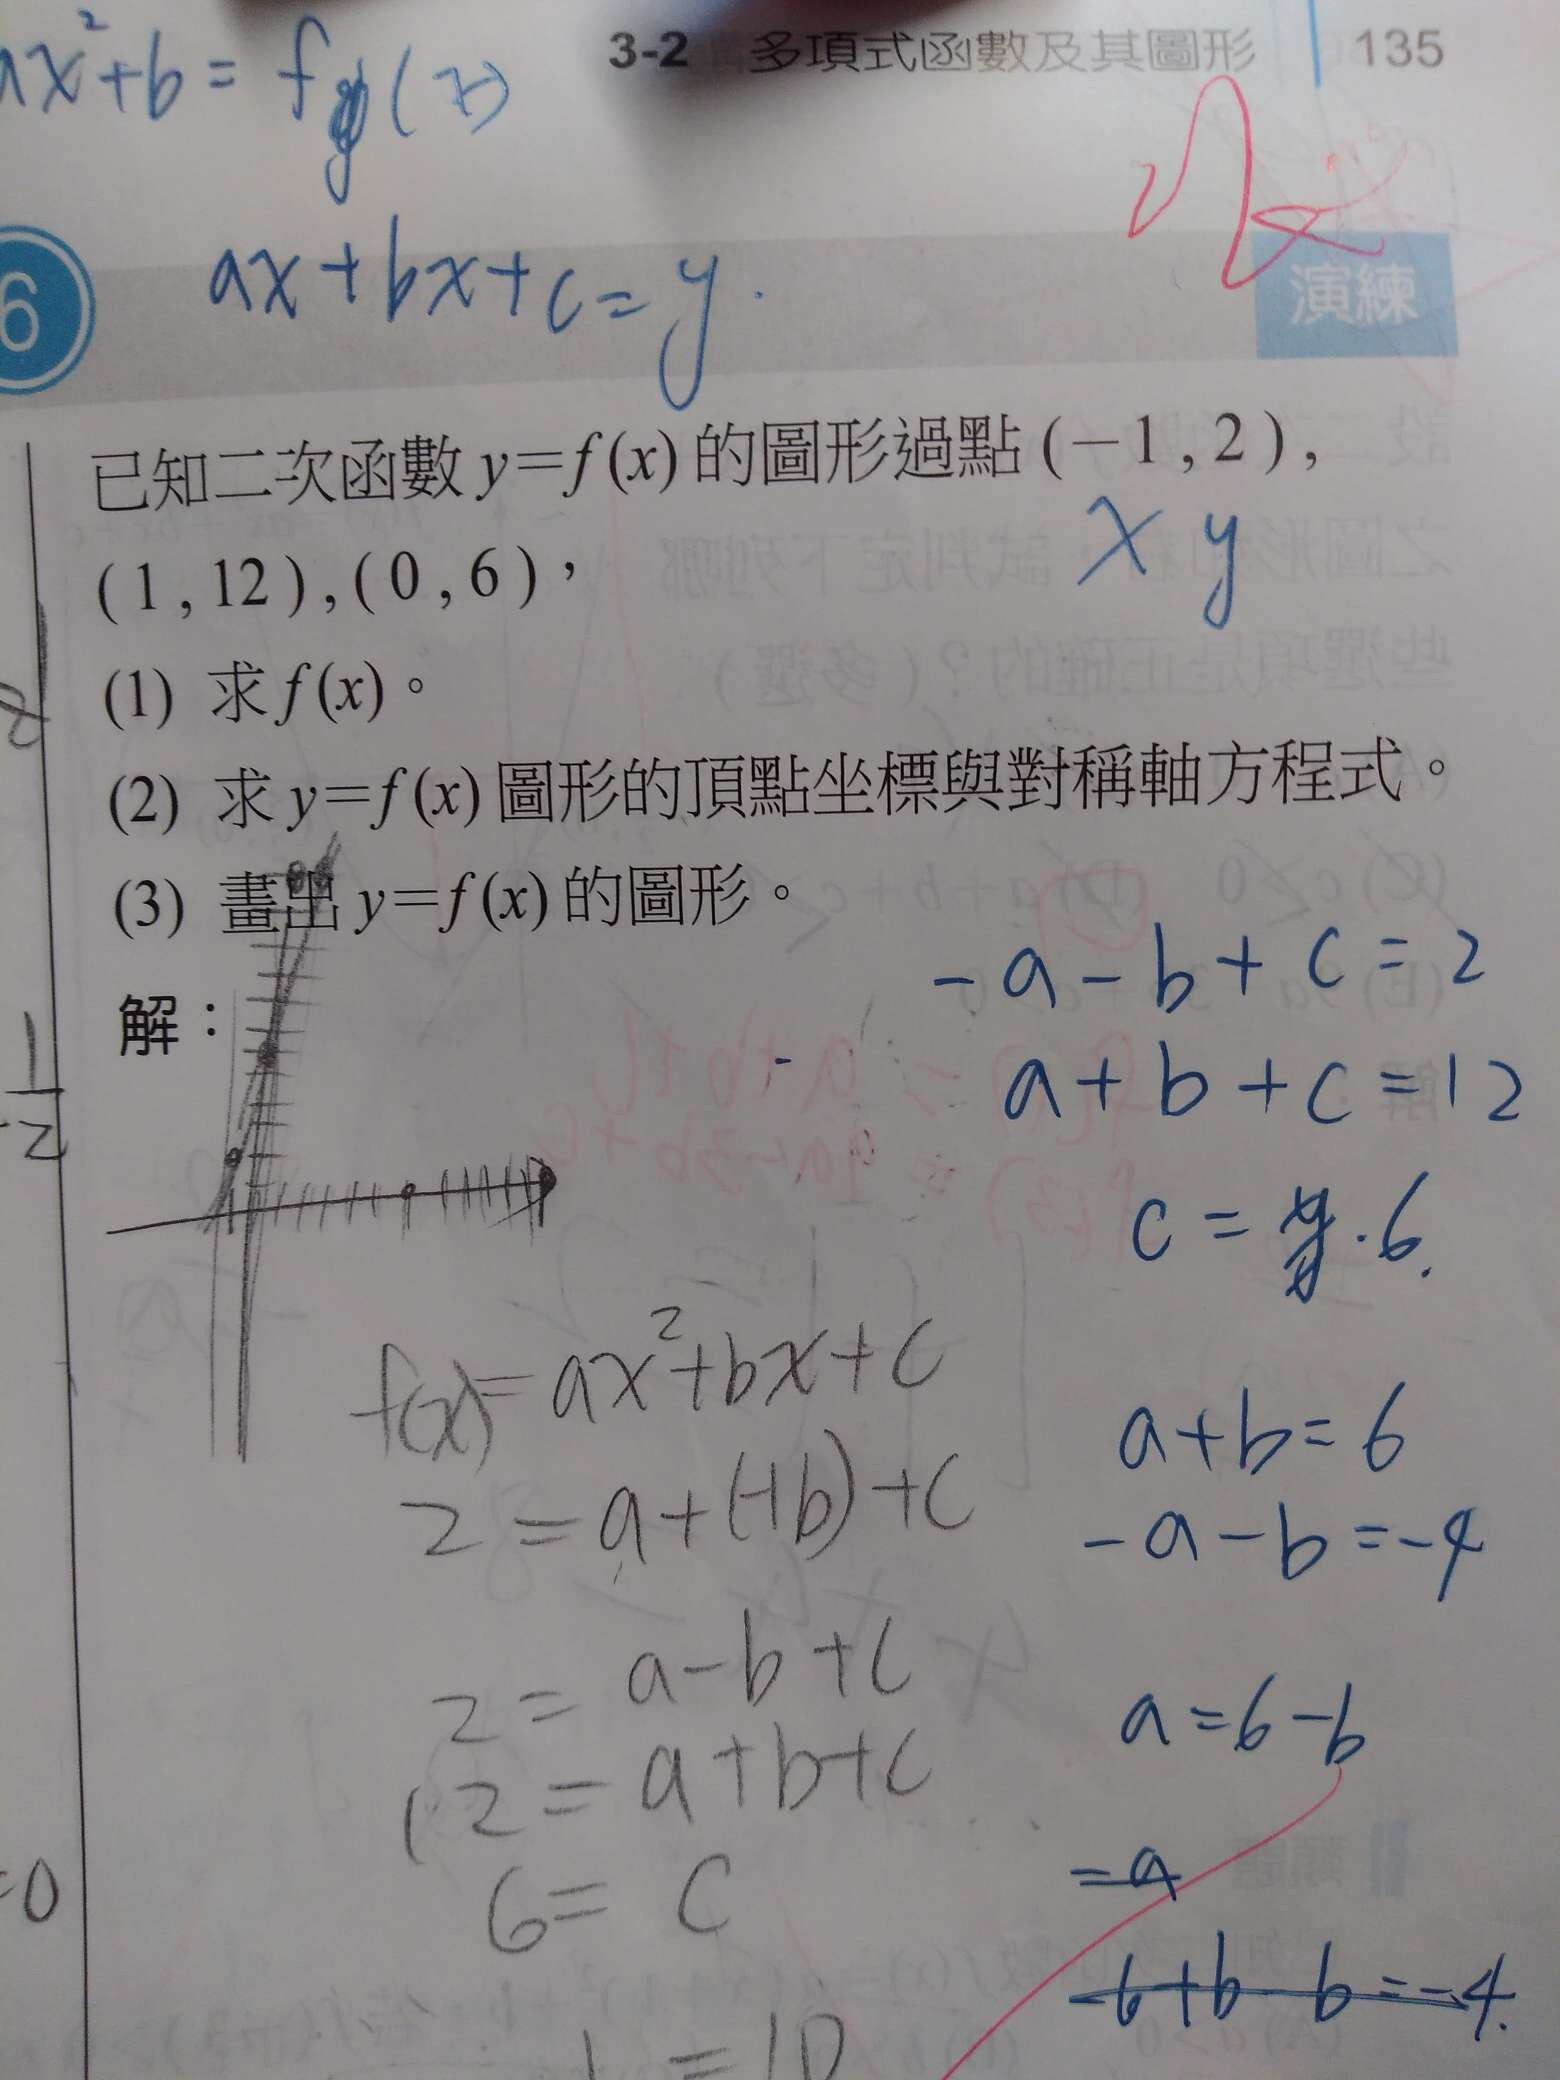 3-2 多項式函數及其圖形 135
ax²+b=f(x)
6
ax+bx+c=y.
演練
已知二次函數 y=f(x) 的圖形過點 (-1,2),
x y
(1,12),(0,6),
(1) 求 f(x)。
(2) 求 y=f(x) 圖形的頂點坐標與對稱軸方程式。
(3) 畫出 y=f(x) 的圖形。
解：
-a-b+c=2
a+b+c=12
c=6.
f(x)=ax²+bx+c
2=a+(-1b)+c
2=a-b+c
12=a+b+c
6=c
=10
a+b=6
-a-b=-4
a=6-b
=a
-6+b-b=-4.
-1/2
=0